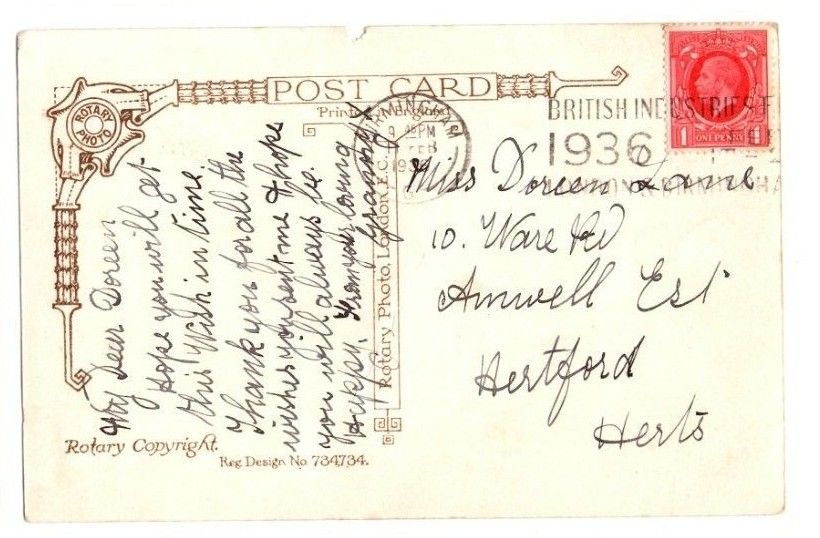 POST CARD
ROTARY PHOTO
Printed in England
BIRMINGHAM
9 45 PM
FEB
193
BRITISH INDUSTRIES F
1936
LONDON & BIRMINGHA
1 ONE PENNY 1
My Dear Doreen
Hope you will get
this Wish in time
Thank you for all the
wishes you sent me & hope
you will always be
Happy. From your loving
Granny
Rotary Photo, London, E.C.
Miss Doreen Lane
10. Ware Rd
Amwell Est
Hertford
Herts
Rotary Copyright.
Reg Design No 734,734.